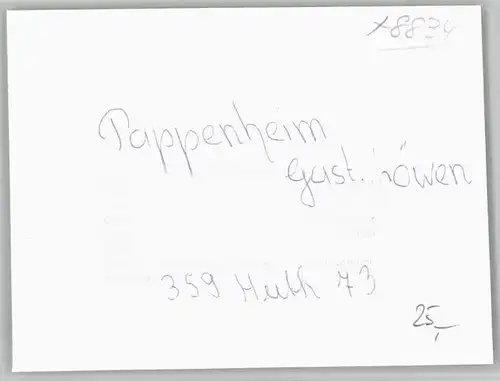 x8834
Pappenheim
Gast. Löwen
359 Huth 73
25,-